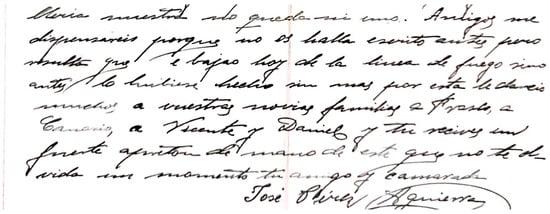 lleria nuestra no queda ni uno. Amigos me
dispensareis porque no os halla escrito antes pero
resulta que e bajao hoy de la linea de fuego sino
antes lo hubiese hecho sin mas por esta le dareis
muchos a vuestras novias familias a Arasto, a
Canario, a Vicente y Daniel y tu recives un
fuerte apreton de mano de este que no te ol-
vida un momento tu amigo y camarada
José Pérez Aguierra